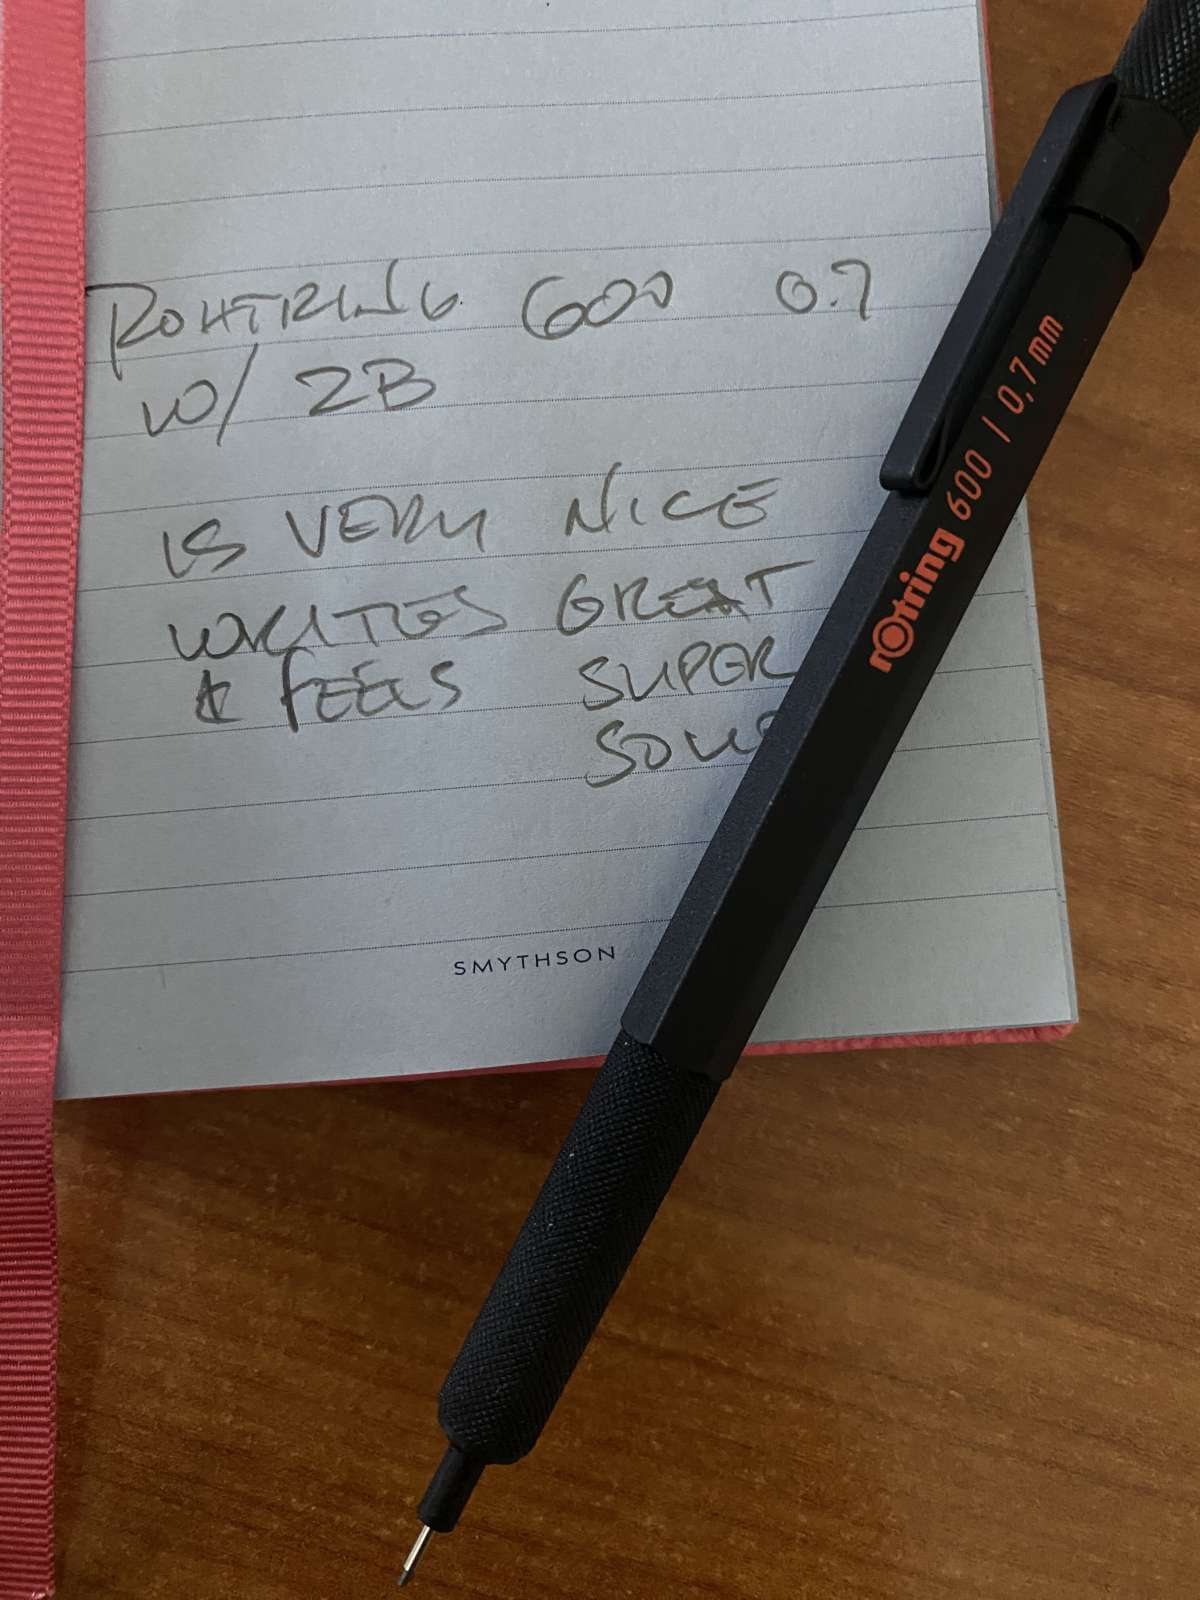 ROHTRING 600 0.7
W/ 2B
IS VERY NICE
WRITES GREAT
& FEELS SUPER
SMYTHSON
rotring 600 | 0,7mm